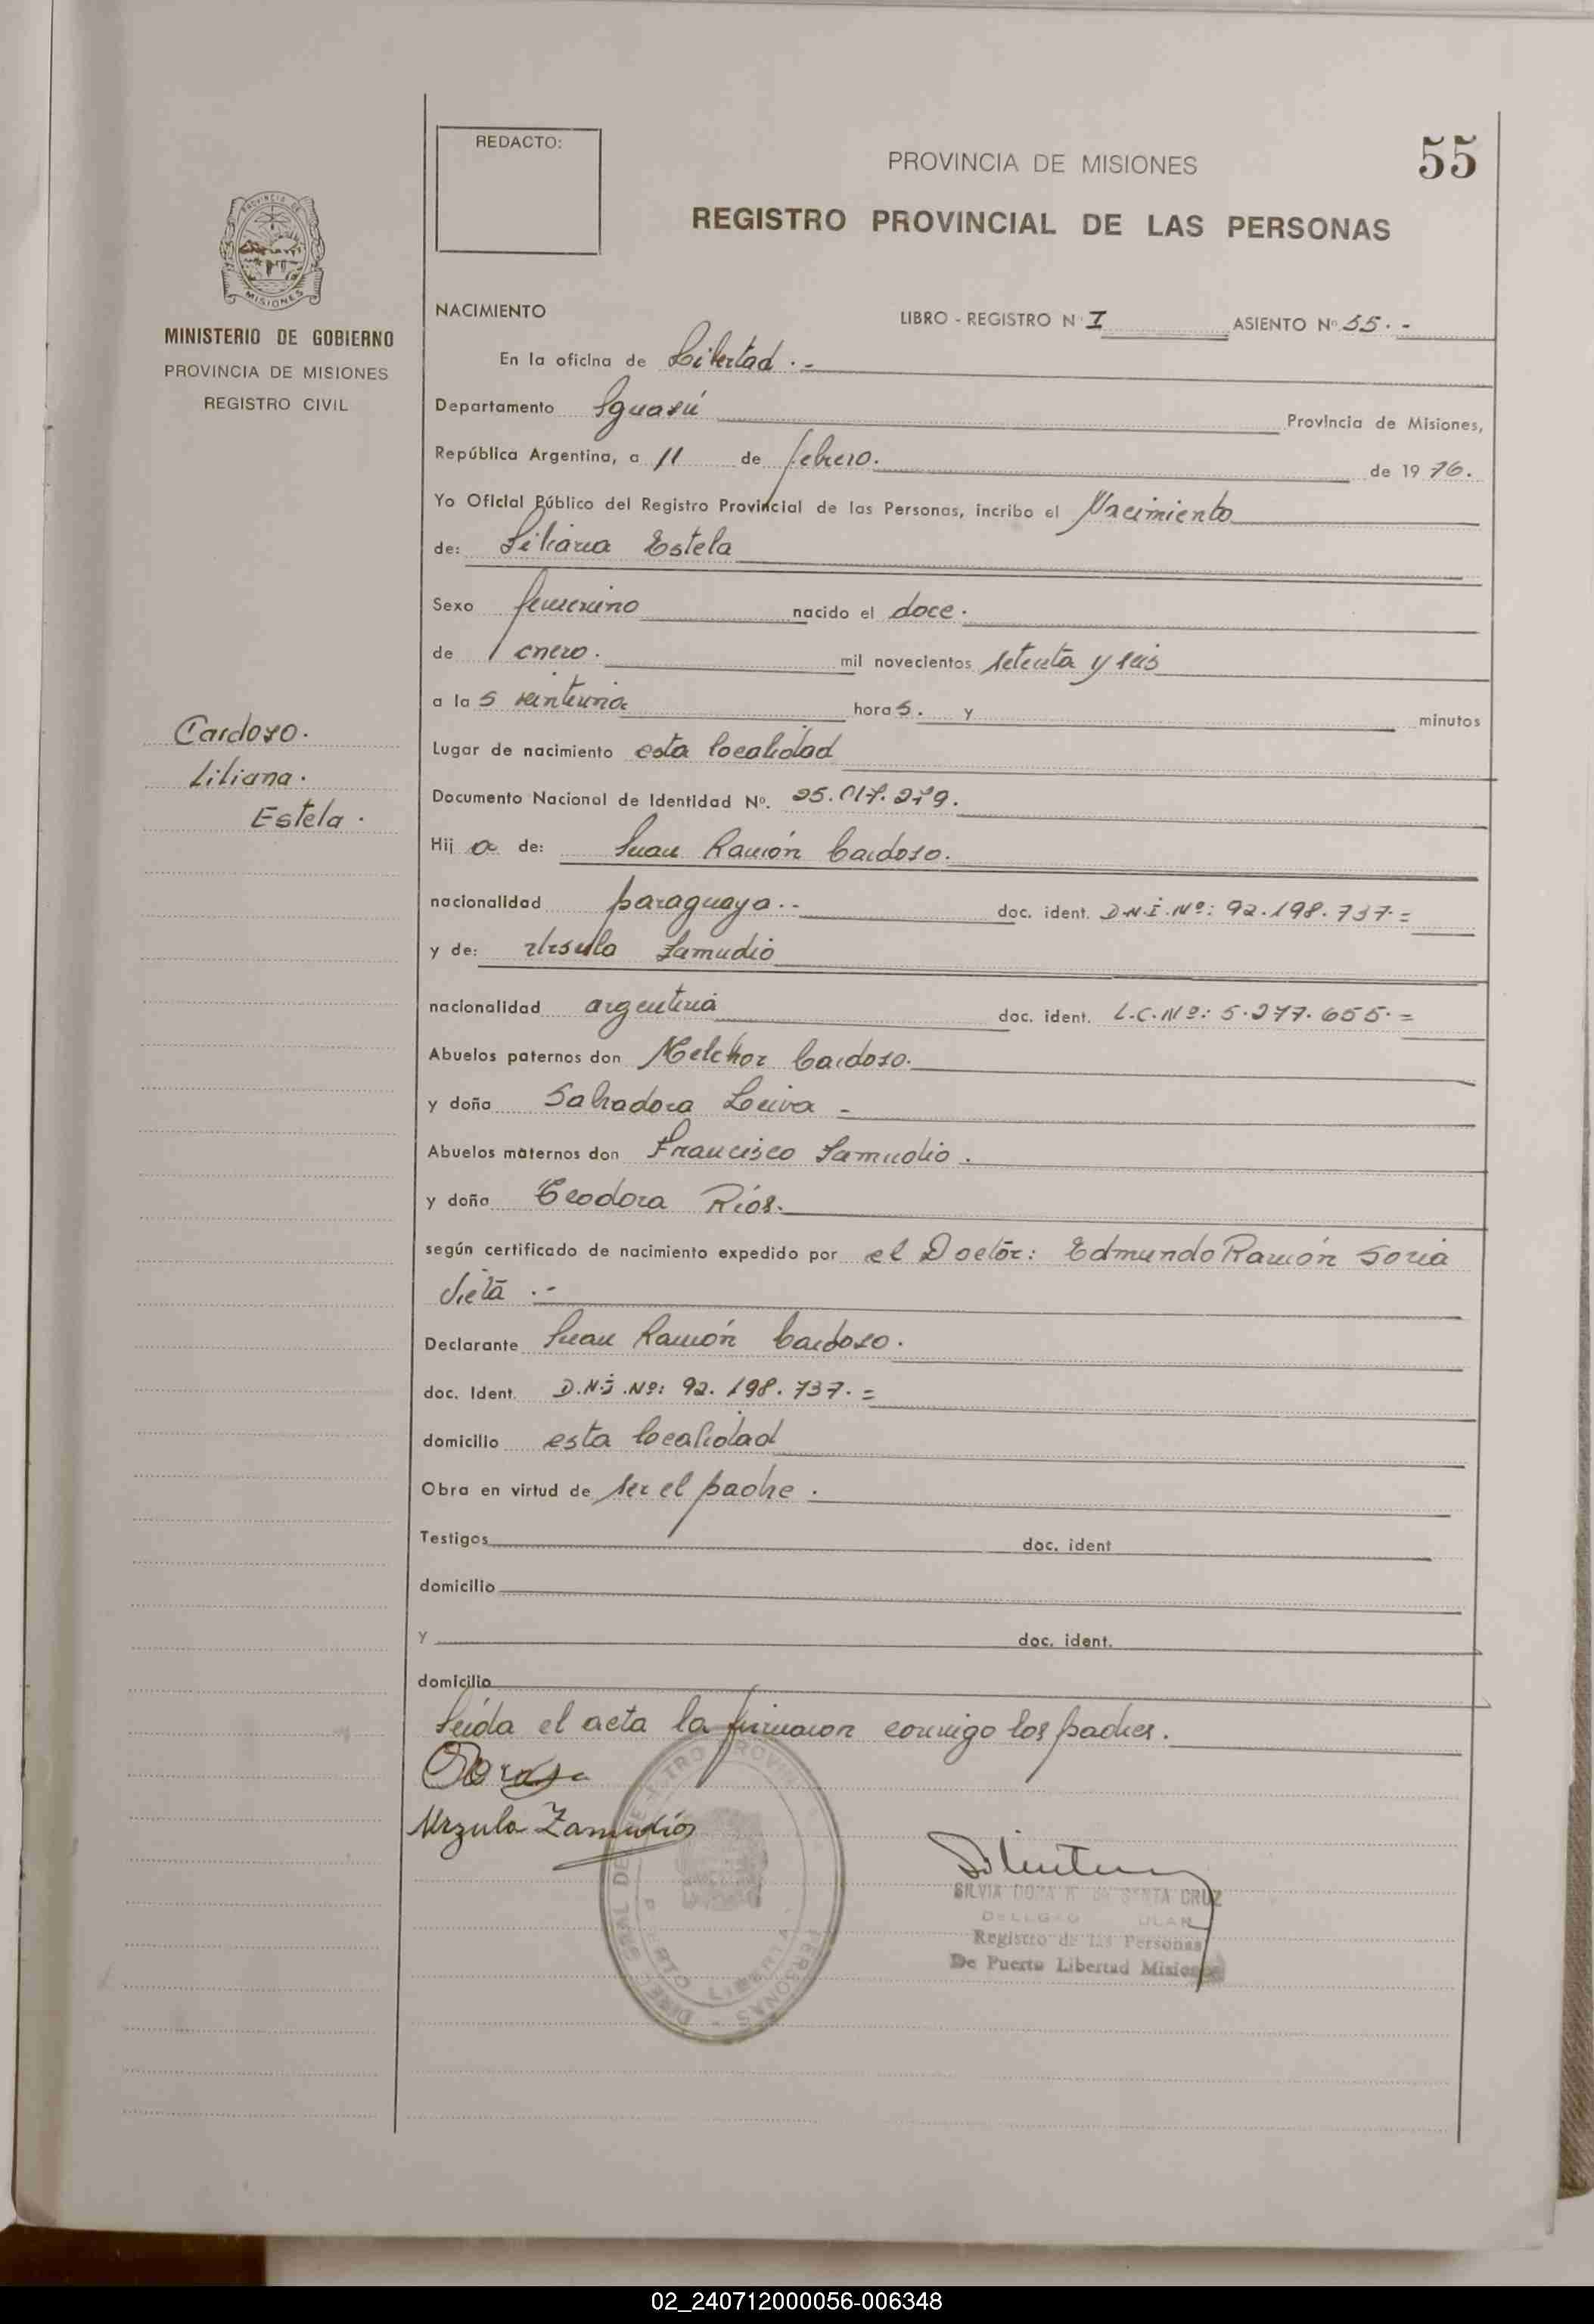 REDACTO:
PROVINCIA DE MISIONES
55
REGISTRO PROVINCIAL DE LAS PERSONAS
MISIONES
MINISTERIO DE GOBIERNO
PROVINCIA DE MISIONES
REGISTRO CIVIL
NACIMIENTO
LIBRO - REGISTRO N° I ASIENTO Nº 55.-
En la oficina de Libertad.-
Departamento Iguazú Provincia de Misiones,
República Argentina, a 11 de febrero. de 1976.
Yo Oficial Público del Registro Provincial de las Personas, incribo el Nacimiento
de: Liliana Estela
Sexo femenino nacido el doce.
de enero. mil novecientos setenta y seis
a las veintiuna horas. y minutos
Cardozo.
Liliana.
Estela.
Lugar de nacimiento esta localidad
Documento Nacional de Identidad Nº. 25.017.279.
Hija de: Juan Ramón Cardozo.
nacionalidad paraguaya.- doc. ident. D.N.I.Nº: 92.198.737.=
y de: Ursula Zamudio
nacionalidad argentina doc. ident. L.C.Nº: 5.277.655.=
Abuelos paternos don Melchor Cardozo.
y doña Salvadora Leiva -
Abuelos maternos don Francisco Zamudio.
y doña Teodora Ríos.
según certificado de nacimiento expedido por el Doctor: Edmundo Ramón Soria
Vieta.-
Declarante Juan Ramón Cardozo.
doc. Ident. D.N.I.Nº: 92.198.737.=
domicilio esta localidad
Obra en virtud de ser el padre.
Testigos doc. ident
domicilio
y doc. ident.
domicilio
Leída el acta la firmaron conmigo los padres.
Urzula Zamudio
SILVIA DE SANTA CRUZ
Registro de las Personas
De Puerto Libertad Misiones
02_240712000056-006348